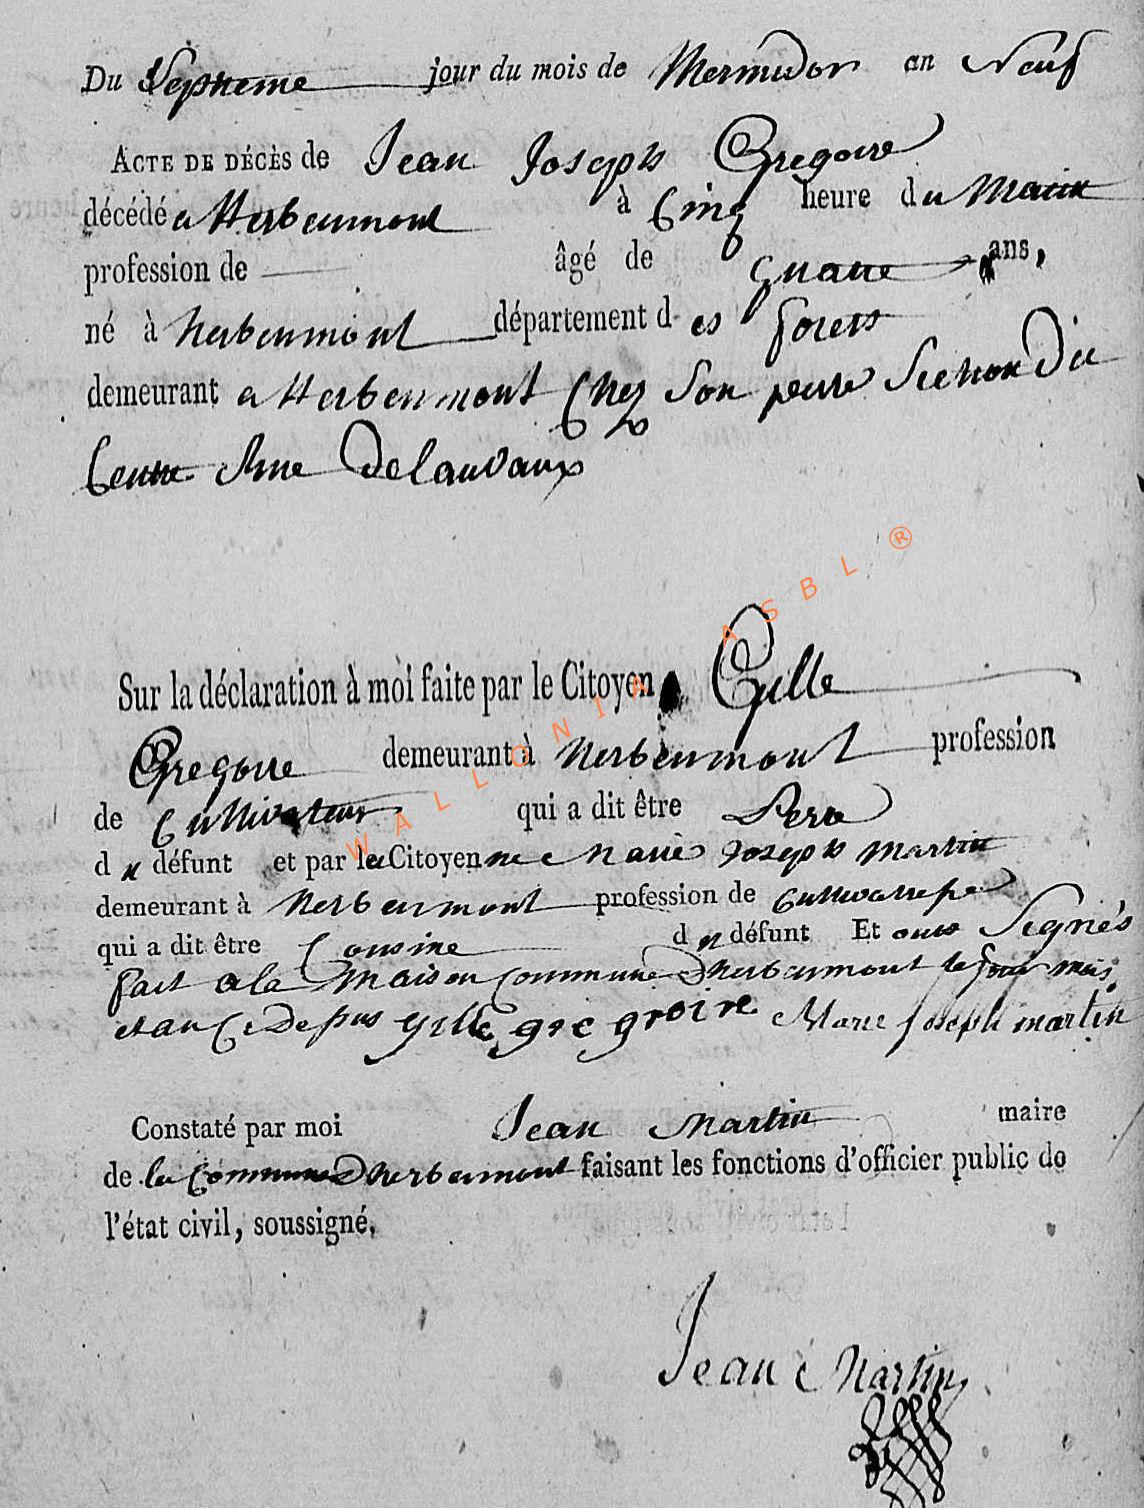 Du Septieme jour du mois de Mermidor an Neuf
ACTE DE DÉCÈS de Jean Joseph Gregoire
décédé a Herbeumont à Cinq heure du Matin
profession de âgé de quatre ans,
né à herbeumont département des forets
demeurant a Herbeumont Chez Son pere Section Du
Centre Rue Delauvaux
Sur la déclaration à moi faite par le Citoyen Gille
Gregoire demeurant à herbeumont profession
de Cultivateur qui a dit être Pere
du défunt et par la Citoyenne Marie Joseph Martin
demeurant à herbeumont profession de
qui a dit être Cousine du défunt Et onts Signés
fait a la Maison Commune Dherbeumont le jour mois
et an Ci Depus gille gregroire Marie joseph martin
Constaté par moi Jean Martin maire
de la Commune Dherbeumont faisant les fonctions d'officier public de
l'état civil, soussigné.
Jean Martin
WALLONIA ASBL ®